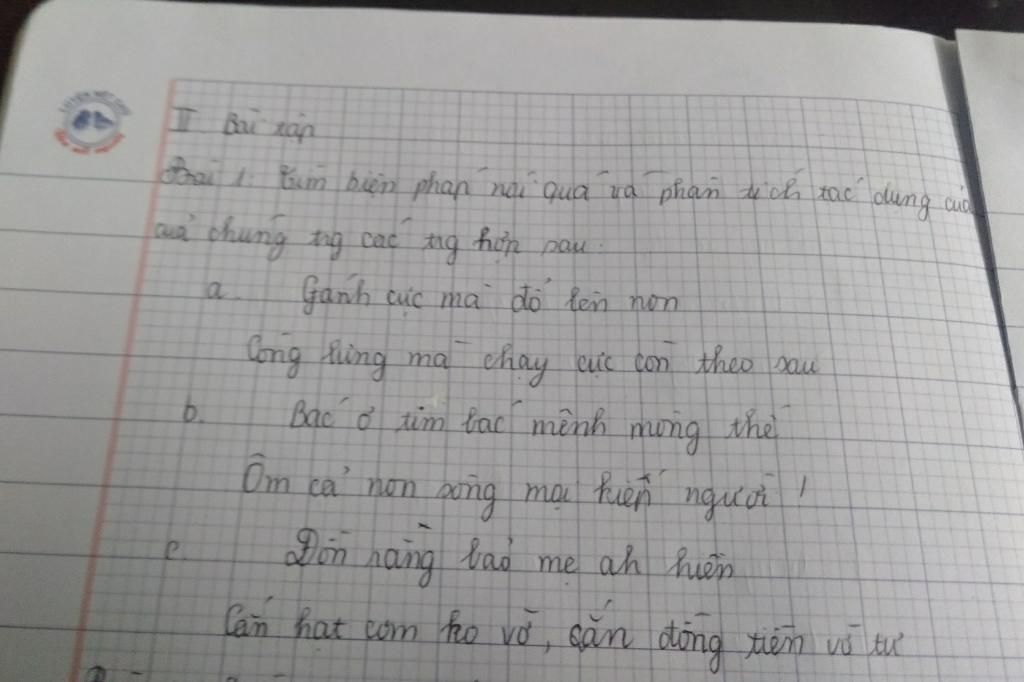 II Bài tập
Bài 1: Tìm biện pháp nói quá và phân tích tác dụng của
của chúng trg các trg hợp sau:
a. Gánh cực mà đổ lên non
Còng lưng mà chạy cực còn theo sau
b. Bác ơi tim bác mênh mông thế
Ôm cả non sông mọi kiếp người!
c. Đồn rằng bác mẹ ah hiền
Cắn hạt cơm ko vỡ, cắn đồng tiền vỡ tư